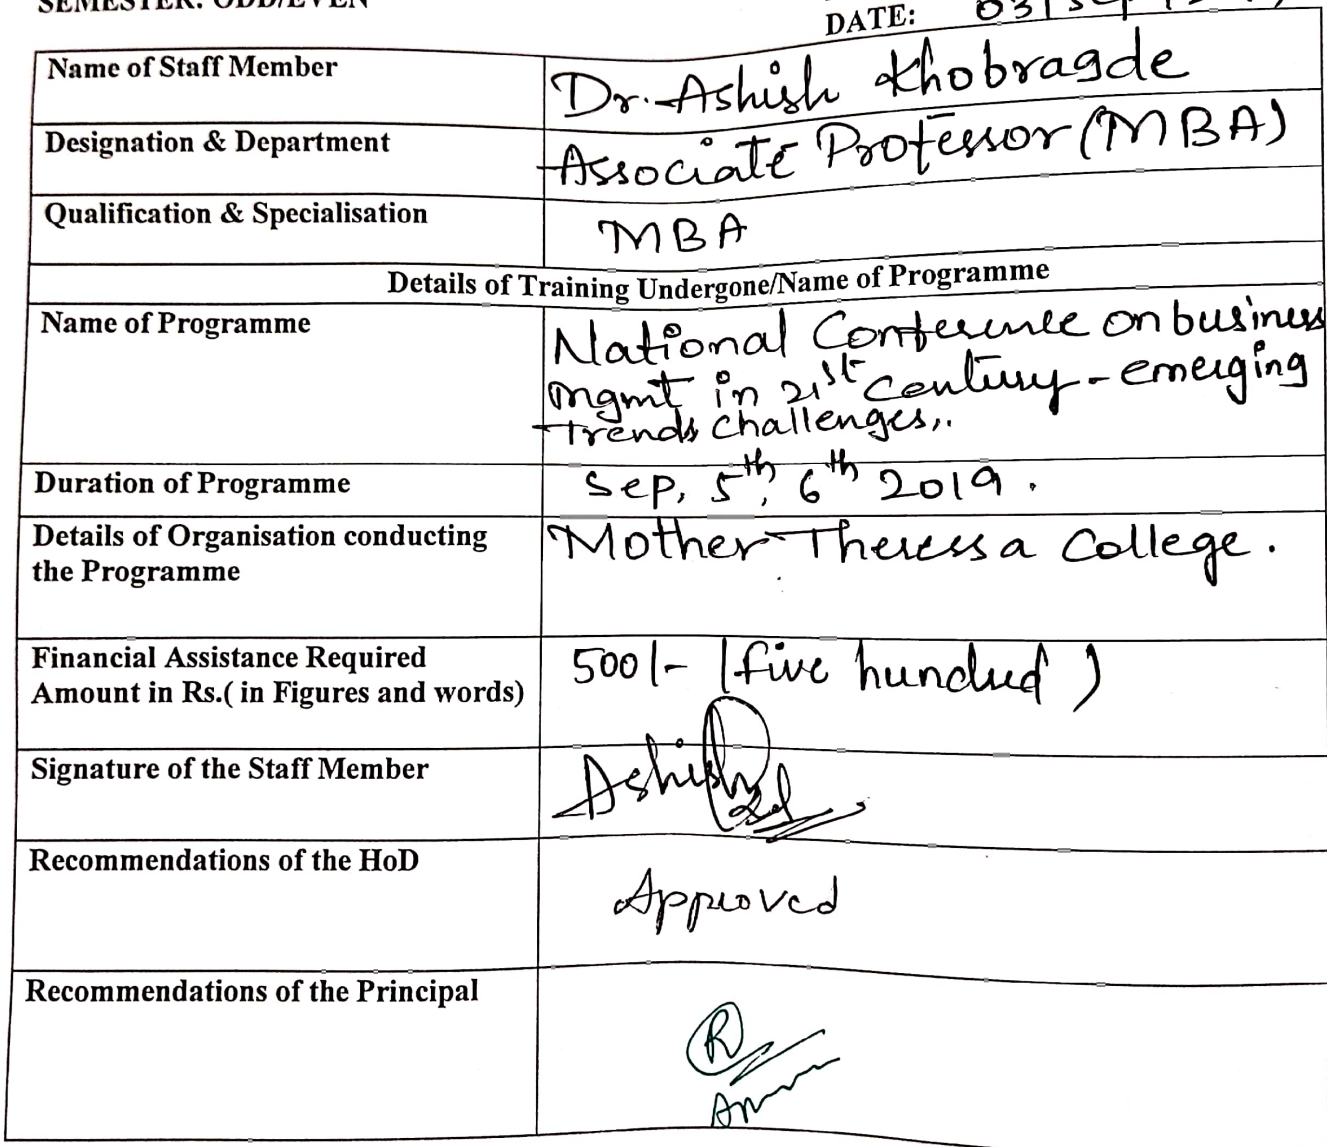 SEMESTER: ODD/EVEN
DATE: 03/Sep
Name of Staff Member Dr. Ashish Khobragde
Designation & Department Associate Professor (MBA)
Qualification & Specialisation MBA
Details of Training Undergone/Name of Programme
Name of Programme National Conference on business
mgmt in 21st Century - emerging
Trends challenges,.
Duration of Programme Sep, 5th, 6th 2019.
Details of Organisation conducting Mother Theressa College.
the Programme
Financial Assistance Required 500/- (five hundred)
Amount in Rs.( in Figures and words)
Signature of the Staff Member Ashish
Recommendations of the HoD Approved
Recommendations of the Principal
R